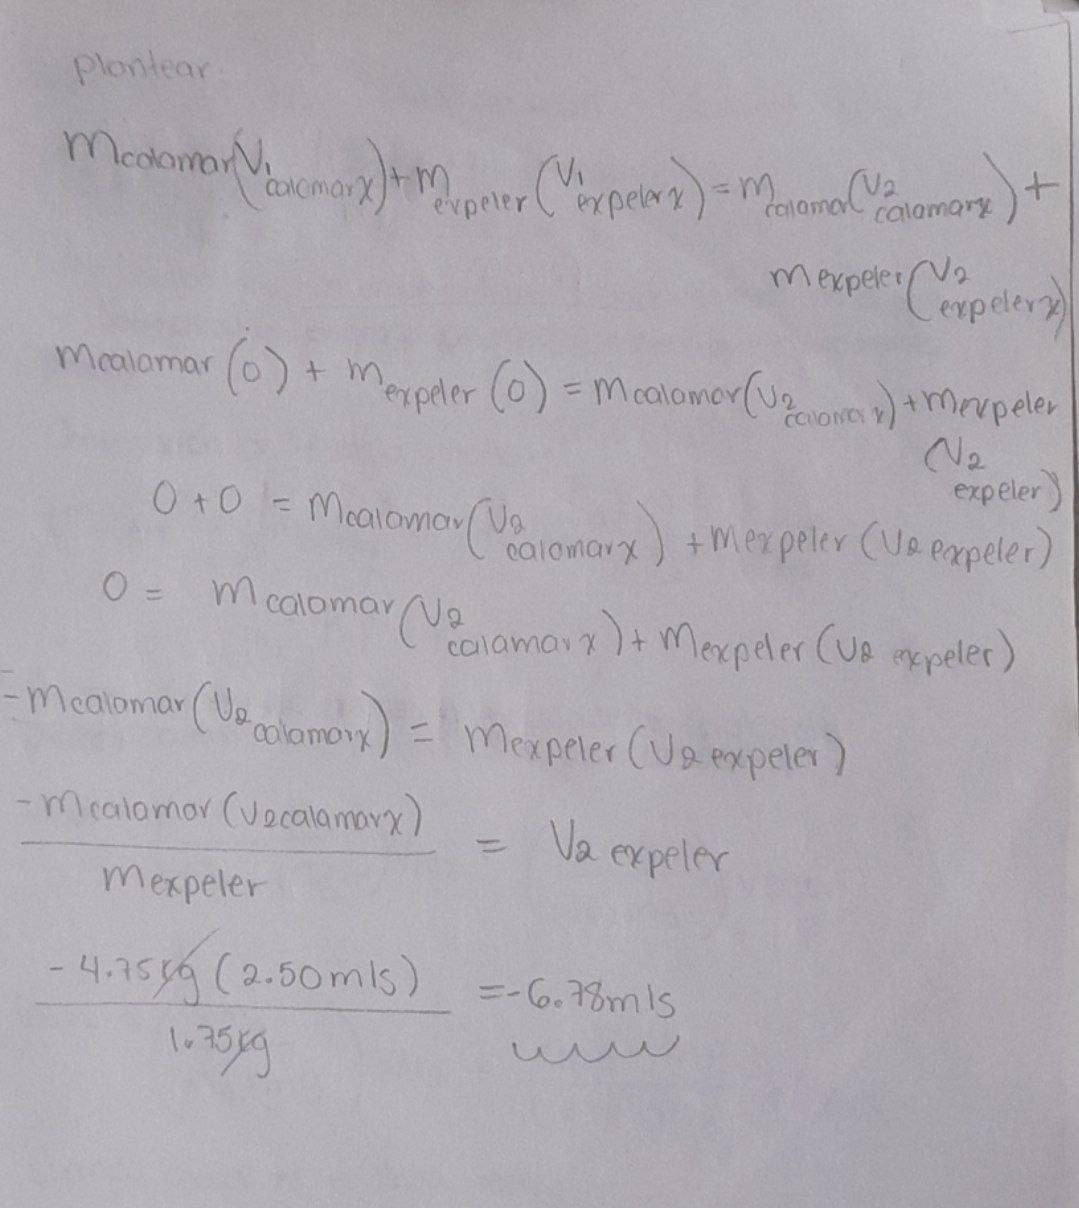 plantear.
mcalamar(V1 calamarx) + m expeler (V1 expelerx) = m calamar(V2 calamarx) +
m expeler (V2 expelerx)
mcalamar (0) + m expeler (0) = mcalamar(V2 calamarx) + mexpeler
(V2 expeler)
0 + 0 = mcalamar(V2 calamarx) + mexpeler (V2 expeler)
0 = m calamar (V2 calamarx) + mexpeler (V2 expeler)
-mcalamar (V2 calamarx) = mexpeler (V2 expeler)
-mcalamar (V2calamarx) / mexpeler = V2 expeler
-4.75kg (2.50m/s) / 1.75kg = -6.78m/s